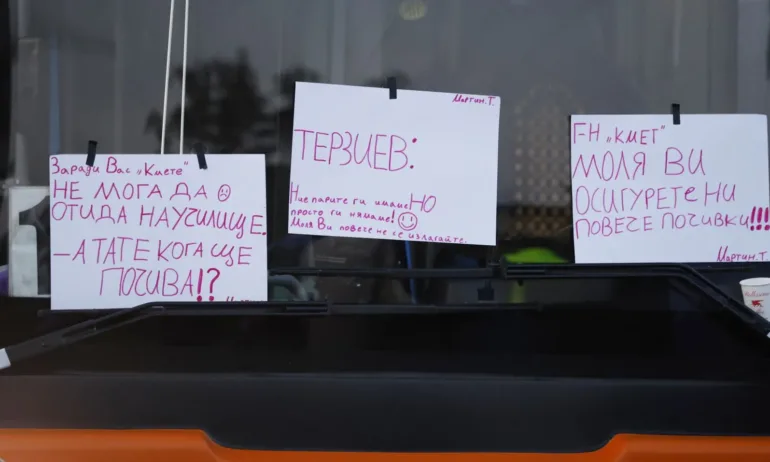 Заради Вас „Кмете"
НЕ МОГА ДА
ОТИДА НА УЧИЛИЩЕ.
– А ТАТЕ КОГА ЩЕ
ПОЧИВА!?
Мартин.Т.
ТЕРЗИЕВ:
Ние парите ги имаме НО
просто ги нямаме!
Моля Ви повече не се излагайте.
ГН „КМЕТ"
МОЛЯ ВИ
ОСИГУРЕТЕ НИ
ПОВЕЧЕ ПОЧИВКИ!!!
Мартин.Т.